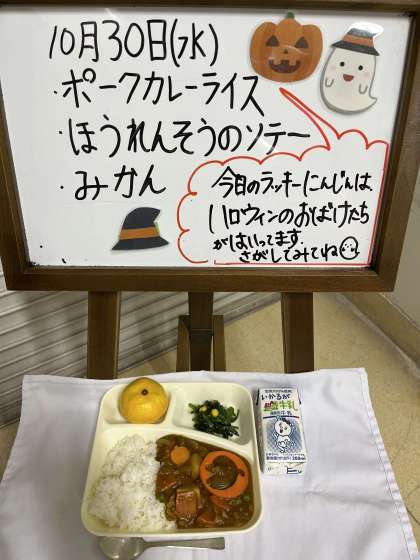 10月30日(水)
・ポークカレーライス
・ほうれんそうのソテー
・みかん
今日のラッキーにんじんは、
ハロウィンのおばけたち
がはいってます。
さがしてみてね
いかるが
牛乳